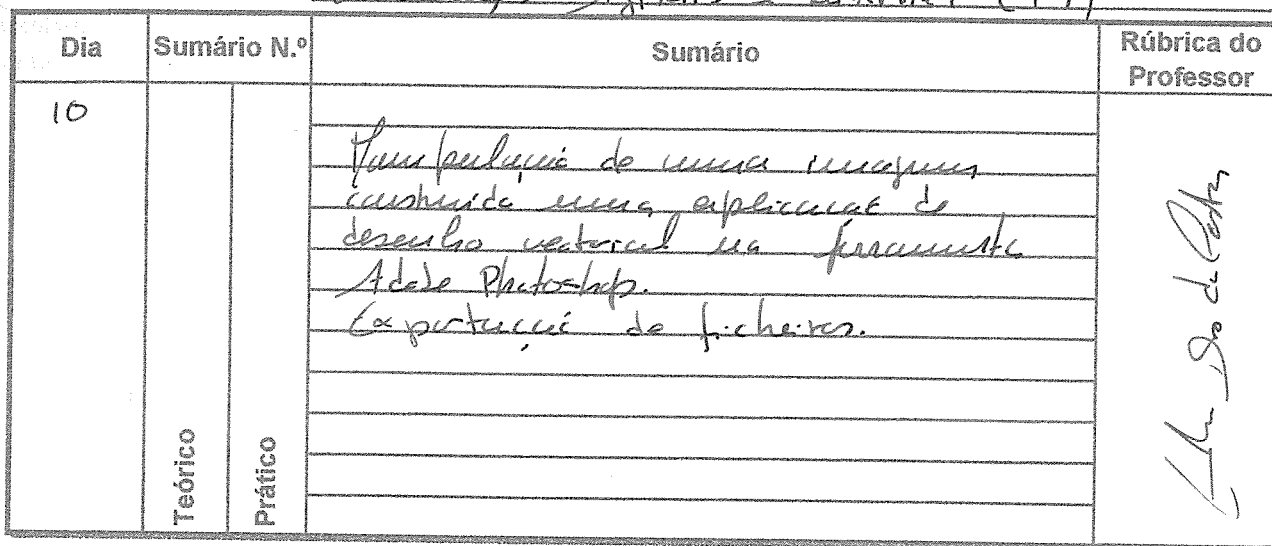 Dia Sumário N.º Sumário Rúbrica do Professor
10
Manipulação de uma imagem
construída numa aplicação de
desenho vectorial na ferramenta
Adobe Photoshop.
Exportação de ficheiros.
Teórico
Prático